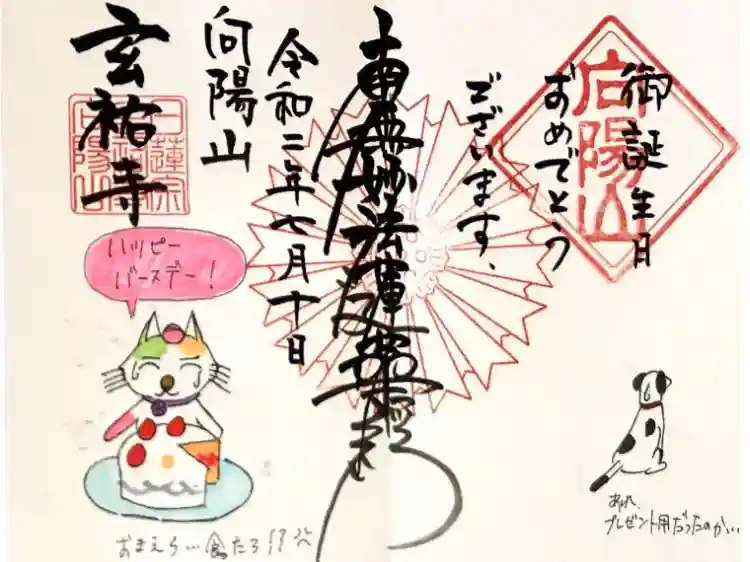 御誕生日
おめでとう
ございます、
向陽山
南無妙法蓮華経
令和二年七月十日
向陽山
玄祐寺
日蓮宗
向陽山
ハッピー
バースデー!
おまえら…食たろ!?
あれ、
プレゼント用だったのかい…